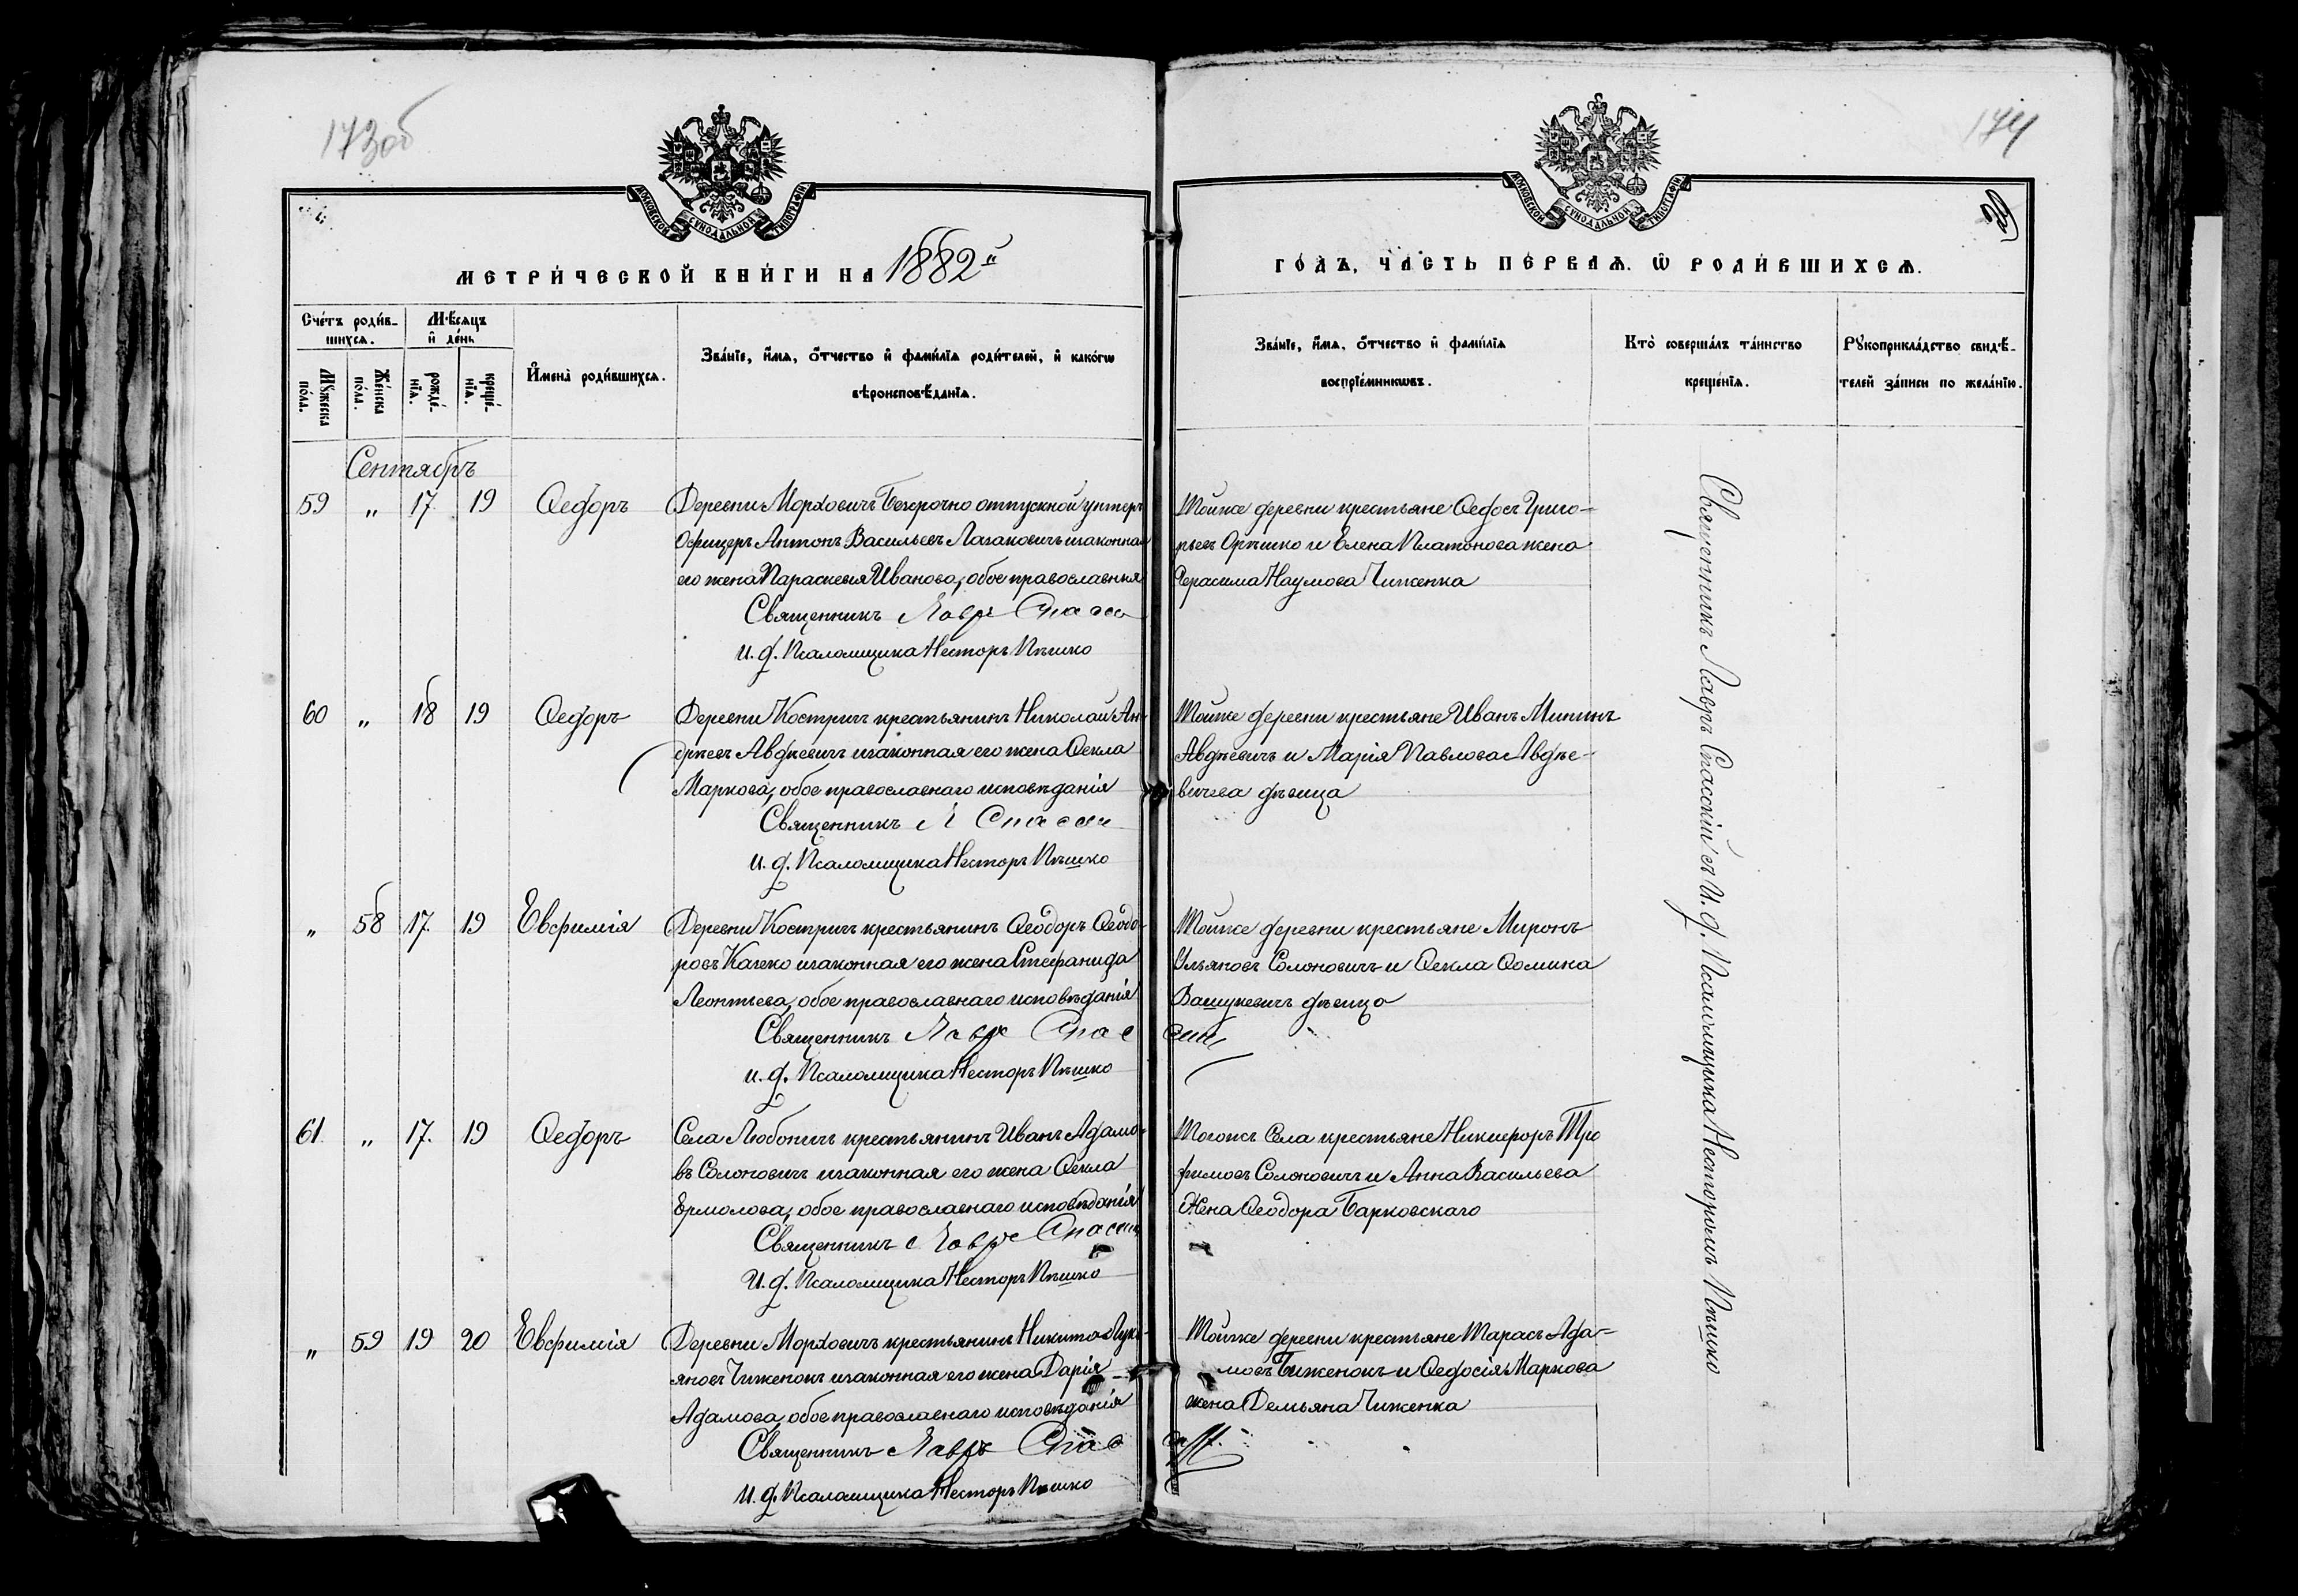 173об
174
МОСКОВСКОЙ СѴНОДАЛЬНОЙ ТИПОГРАФІИ
МОСКОВСКОЙ СѴНОДАЛЬНОЙ ТИПОГРАФІИ
МЕТРИ́ЧЕСКОЙ КНИ́ГИ НА 1882й
ГО́ДЪ, ЧА́СТЬ ПЕ́РВАѦ. Ѿ РОДИ́ВШИХСѦ.
Сче́тъ роди́в-
шихсѧ.
Мѣ́сѧцъ
и҆ де́нь
Мꙋ́жеска
по́ла.
Же́нска
по́ла.
рожде́-
нїѧ.
креще́-
нїѧ.
И҆мена̀ роди́вшихсѧ.
Зва́нїе, и҆́мѧ, ѻ҆́тчество и҆ фами́лїѧ роди́телей, и҆ како́гѡ
вѣроисповѣ́данїѧ.
Зва́нїе, и҆́мѧ, ѻ҆́тчество и҆ фами́лїѧ
воспрїе́мникѡвъ.
Кто̀ соверша́лъ та́инство
креще́нїѧ.
Рꙋкоприкла́дство свидѣ́-
телей за́писи по жела́нїю.
Сентябрь
59 „ 17. 19 Ѳедоръ
Деревни Морховичъ Безсрочно отпускной унтеръ
Офицеръ Антонъ Васильевъ Лазаковичъ изаконная
его жена Параскевія Иванова, обое православныя
Священникъ Лавръ Спасс
и. д. Псаломщика Несторъ Пѣшко
Тойже деревни крестьяне Ѳедосъ Григо-
рьевъ Орѣшко и Елена Платонова жена
Герасима Наумова Чиженка
60 „ 18 19 Ѳедоръ
Деревни Костричъ крестьянинъ Николай Ан-
дреевъ Авдѣевичъ изаконная его жена Ѳекла
Маркова, обое православнаго исповѣданія
Священникъ Л Спасск
и. д. Псаломщика Несторъ Пѣшко
Тойже деревни крестьяне Иванъ Мининъ
Авдѣевичъ и Марія Павлова Авдѣе-
вичева дѣвица
„ 58 17. 19 Евфимія
Деревни Костричъ крестьянинъ Ѳеодоръ Ѳеодо-
ровъ Качко изаконная его жена Стефанида
Леонтьева, обое православнаго исповѣданія
Священникъ Лавръ Спасскій
и. д. Псаломщика Несторъ Пѣшко
Тойже деревни крестьяне Миронъ
Ульяновъ Солоновичъ и Ѳекла Ѳомина
Вашукевичъ дѣвица
61. „ 17. 19 Ѳедоръ
Села Любоничъ крестьянинъ Иванъ Адамо-
въ Солоновичъ изаконная его жена Ѳекла
Ермолова, обое православнаго исповѣданія
Священникъ Лавръ Спасск
И. д. Псаломщика Несторъ Пѣшко
Тогожъ Села крестьяне Никифоръ Тро
фимовъ Солоновичъ и Анна Васильева
Жена Ѳеодора Барковскаго
„ 59 19 20 Евфимія
Деревни Морховичъ крестьянинъ Никита Лукь-
яновъ Чиженокъ изаконная его жена Дарія
Адамова, обое православнаго исповѣданія
Священникъ Лавръ Спас
И. д. Псаломщика Несторъ Пѣшко
Тойже деревни крестьяне Тарасъ Ада-
мовъ Чиженокъ и Ѳедосія Маркова
жена Демьяна Чиженка
Священникъ Лавръ Спасскій съ И. д. Псаломщика Несторомъ Пѣшко